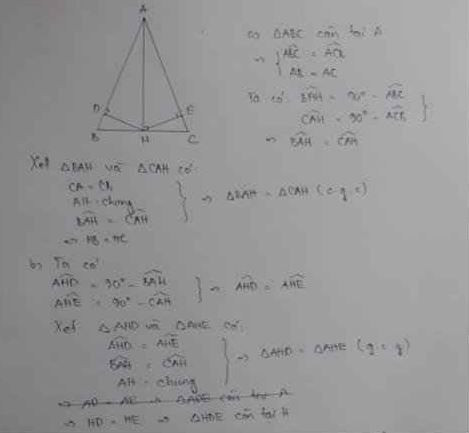 A
D
E
B
H
C
a) ΔABC cân tại A
=> { ABC = ACB
AB = AC
Ta có: BAH = 90° - ABC
CAH = 90° - ACB
=> BAH = CAH
Xét ΔBAH và ΔCAH có:
AH : chung
BAH = CAH
=> ΔBAH = ΔCAH (c.g.c)
=> HB = HC
b) Ta có:
AHD = 90° - BAH
AHE = 90° - CAH
=> AHD = AHE
Xét ΔAHD và ΔAHE có:
AHD = AHE
BAH = CAH
AH = chung
=> ΔAHD = ΔAHE (g.c.g)
=> AD = AE => ΔADE cân tại A
=> HD = HE => ΔHDE cân tại H